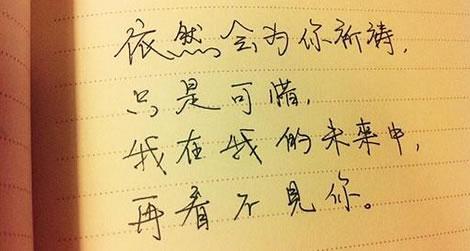 依然会为你祈祷,
只是可惜,
我在我的未来中,
再看不見你。